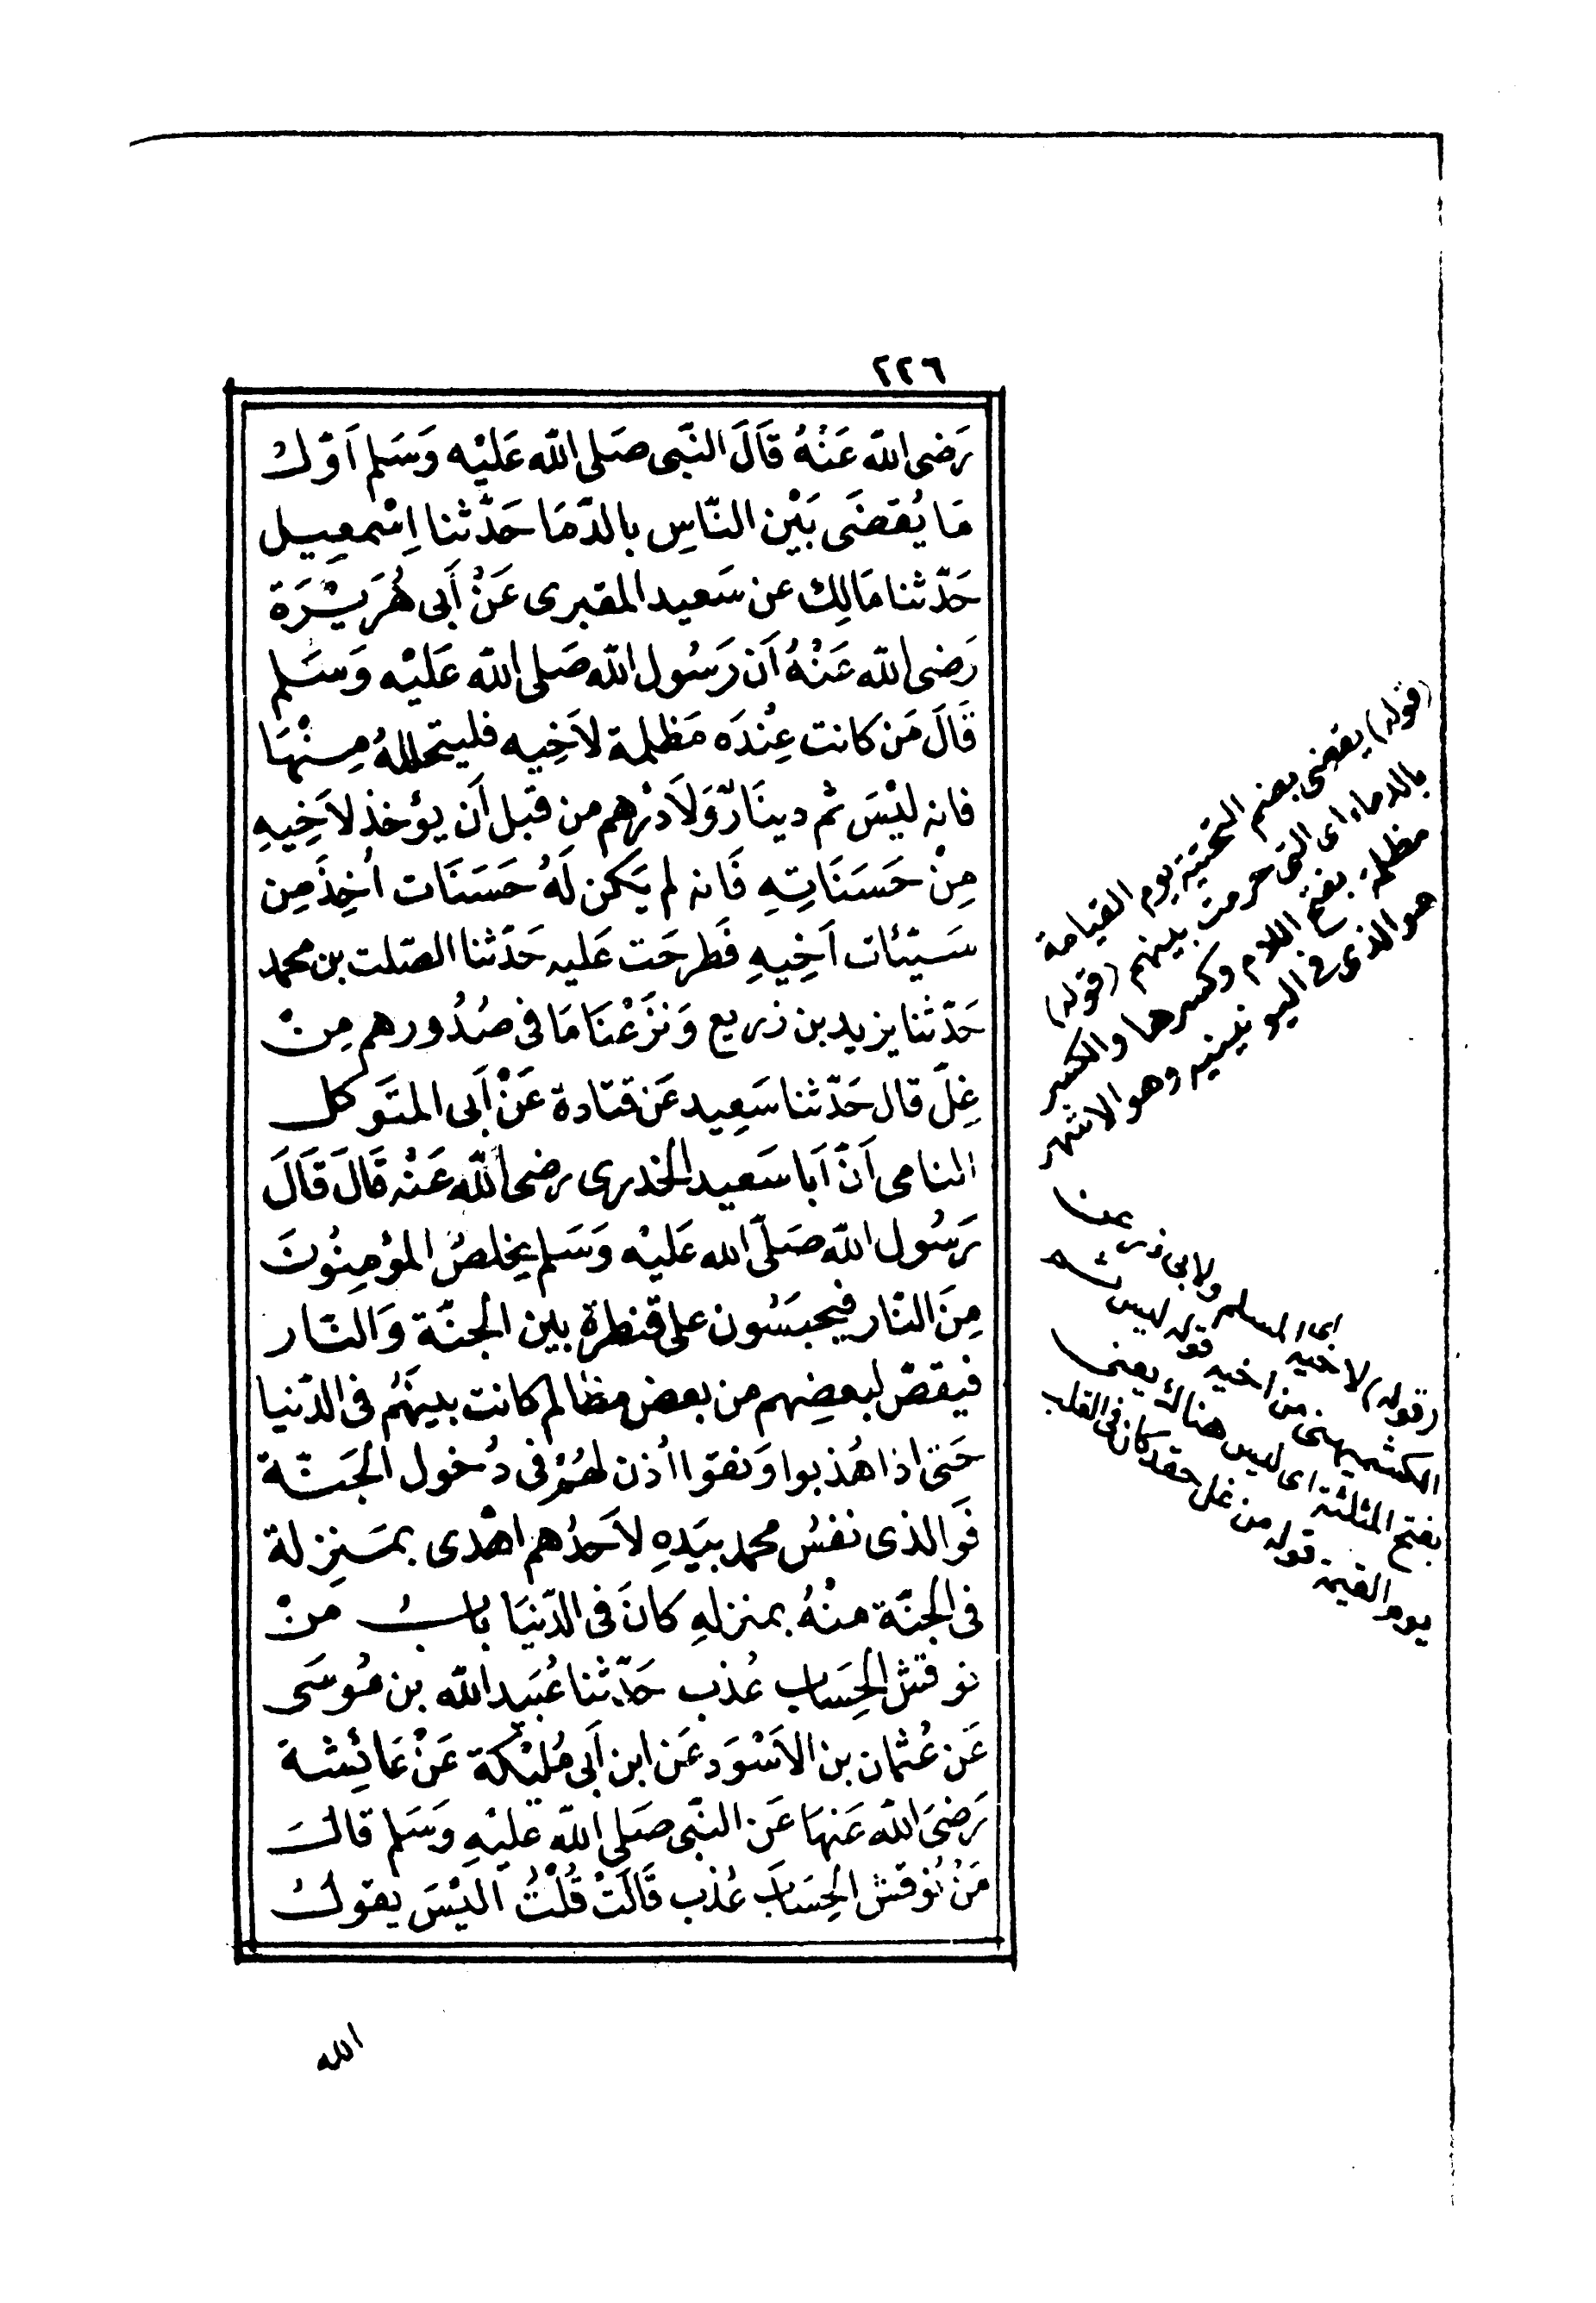 ٢٢٦
رَضى الله عَنْهُ قَالَ النَّبى صَلى الله عَلَيْه وَسَلم اَوّل
مَا يُقضَى بَيْن النَّاسِ بالدّمَا حَدّثنا اِسْمعِيل
حَدّثنا مَالِك عن سَعيد المقبرى عَنْ أَبى هُرَيْرَة
رَضى الله عَنْهُ اَن رَسُول الله صَلى الله عَلَيْه وَسَلم
قَالَ مَن كانت عِنْدَه مَظلمة لاَخِيه فليتحلله مِنْهَا
فانه ليْسَ ثم دينَارٌ وَلاَ دِرْهم من قبل اَن يؤخذ لاَخِيهِ
مِنْ حَسَنَاتِهِ فَانه لم يَكن لَهُ حَسَنَات اُخِذَ مِن
سَيّئات اَخِيهِ فَطرحَت عَليه حَدّثنا الصّلت بن محمد
حَدّثنا يزيد بن زريع وَنزَعْنَا مَا فى صُدُورهم مِنْ
غِلّ قال حَدّثنا سَعِيد عَن قتَادة عَنْ اَبى المتَوَكل
المنامى اَنّ اَبا سَعيد الخدرى رضى الله عَنْه قَالَ قَالَ
رَسُول الله صَلّى الله عَلَيْه وَسَلم يخلصُ المؤمِنُونَ
مِنَ النّار فيحبَسُون على قنطرة بين الجنّة وَالنّار
فيقصّ لبعضِهم من بعض مظالم كانت بينَهُم فى الدّنيا
حَتى اذا هُذبوا وَنقوا اُذن لهُمْ فى دُخول الجَنّة
فَوالذى نفسُ محمد بيَدهِ لاَحدُهم اهْدى بمَنزِلة
فى الجنّة منْهُ بمنزلهِ كانَ فى الدّنيَا بابُ مَنْ
نوقش الحِسَاب عُذب حَدّثنا عُبَيد الله بن مُوسَى
عَن عُثمان بن الاَسْوَد عَن ابن اَبى مُليْكة عَنْ عَائِشة
رَضىَ الله عَنهَا عَن النّبى صَلى الله عَليْهِ وَسَلم قالَ
مَنْ نُوقش الحِسَابَ عُذب قَالَتْ قُلْتُ اَليْسَ يقول
(قوله) يقضى بضم التحتية يوم القيامة
بالدماء اى التى حرمت بينهم (قوله)
مظلمة بفتح اللام وكسرها والكسر
هو الذى فى اليونينية وهو الاشهر
(قوله) لاخيه اى المسلم ولابى ذر عن
الكشميهنى من اخيه قوله ليس ثم
بفتح المثلثة اى ليس هناك يعنى
يوم القيمة قوله من غل حقد كان فى القلب
الله